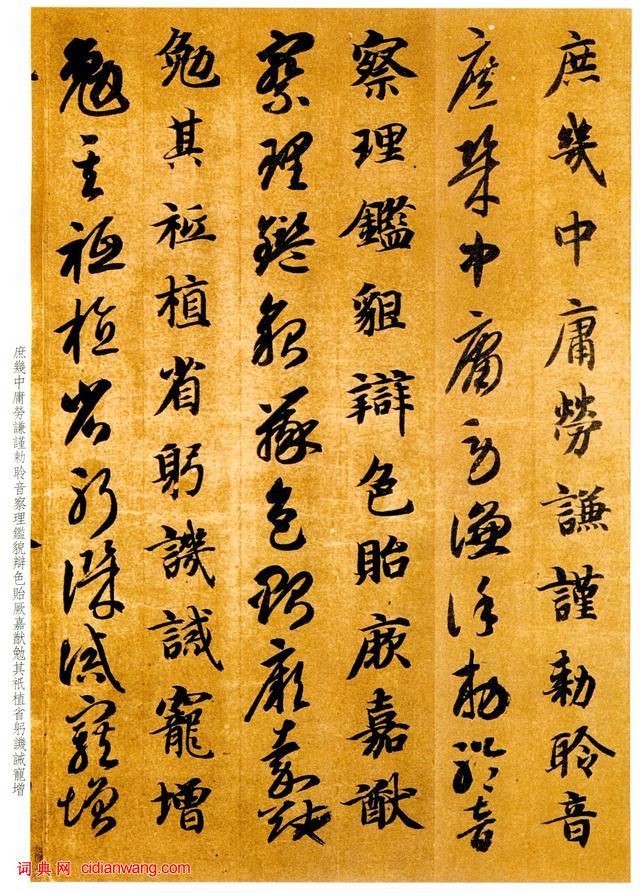 庶幾中庸勞謙謹勅聆音
庶幾中庸勞謙謹勅聆音
察理鑑貌辯色貽厥嘉猷
察理鑑貌辯色貽厥嘉猷
勉其祗植省躬譏誡寵增
勉其祗植省躬譏誡寵增
庶幾中庸勞謙謹勅聆音察理鑑貌辯色貽厥嘉猷勉其祇植省躬譏誡寵增
词典网 cidianwang.com